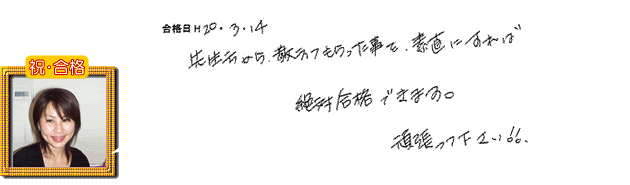 合格日H20.3.14
先生方から、教えてもらった事を、素直にすれば
祝・合格
絶対合格できます。
頑張って下さい!!